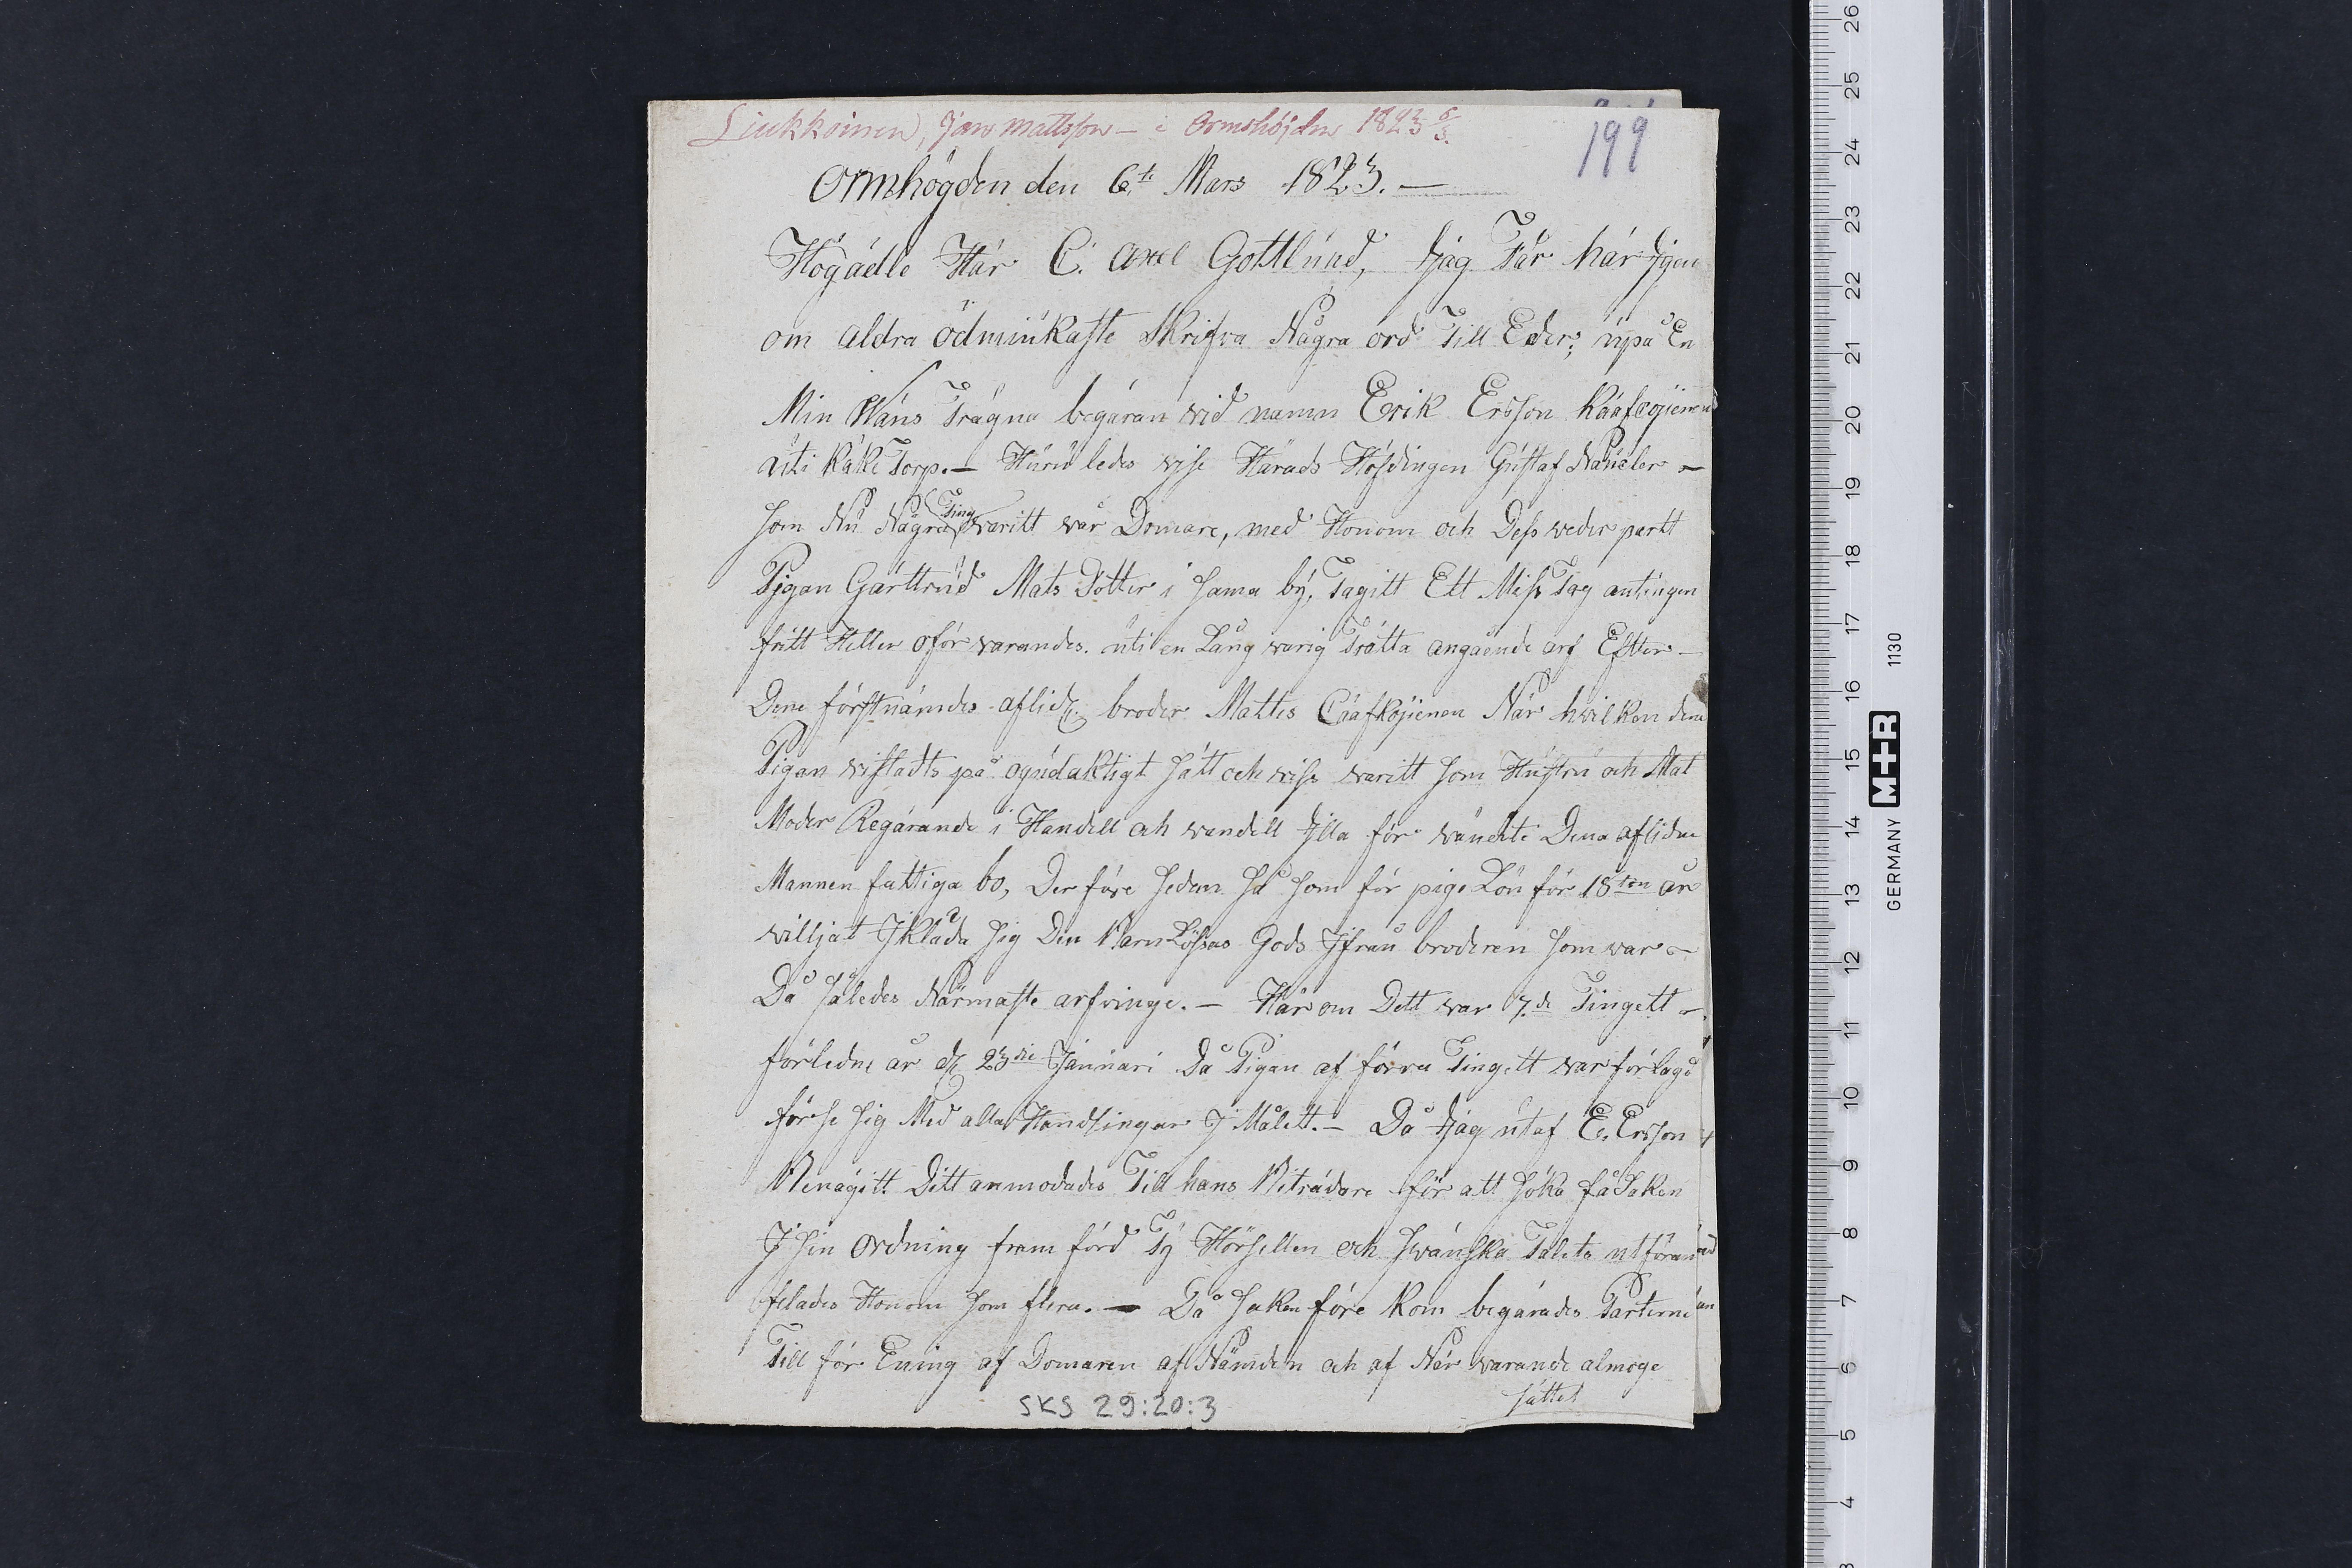 Liukkoinen, Jan Mattsson – i Ormshöjden 1823 6/3.
199
Ormhögden den 6.te Mars 1823. —
Högädle Här C. Axel Gottlund, Jag Får här Jgen
om aldra ödmiukaste Skrifva Några ord Till Eder; uppå En
Min Wäns Trägna begäran wid namn Erik Ersson Kaafcojienen
uti Käke Torp. — Huru ledes wise Härads Höfdingen Gustaf Naucler –
som Nu Några Ting waritt wår Domare, med Honom och Dess weder partt
Pigan Gärttrud Mats Dotter i sama by, Tagitt Ett Miss Tag antingen
fritt Heller oför warandes. uti en Lång warig Trätta angående arf Efter –
Dene förstnämdes aflidz broder Mattes Cáafkojienen När hwilken dena
Pigan wistadts på ogudaktigt sätt och wiss waritt som Hustru och Mat
Moder Regärande i Handell och wandell Jlla för wänckte Dena aflidne
Mannen fattiga bo, Der före sedan så som för pige Lön för 18ton år
willjat Jkläda sig Den Barn Lössas Gods Jfrån broderen som war –
Då således Närmaste arfvinge. — Här om Dett war 7.de Tingett –
förledne år dz 23die Januari Då Pigan af förra Tingett war förlagd
förse sig Med alla Handlingar J Målett. — Då Jag utaf E. Ersson
Benägitt Ditt anmodades Till hans Biträdare för att söka få Saken
J sin Ordning fram förd Ty Hörsellen och Swänska Talets utföran
felades Honom som flera. — Då saken före kom begärades Parterne
Till för Ening af Domaren af Nämden och af När warande almoge
sättet
SKS 29:20:3
GERMANY M+R 1130
26
25
24
23
22
21
20
19
18
17
16
15
14
13
12
11
10
9
8
7
6
5
4